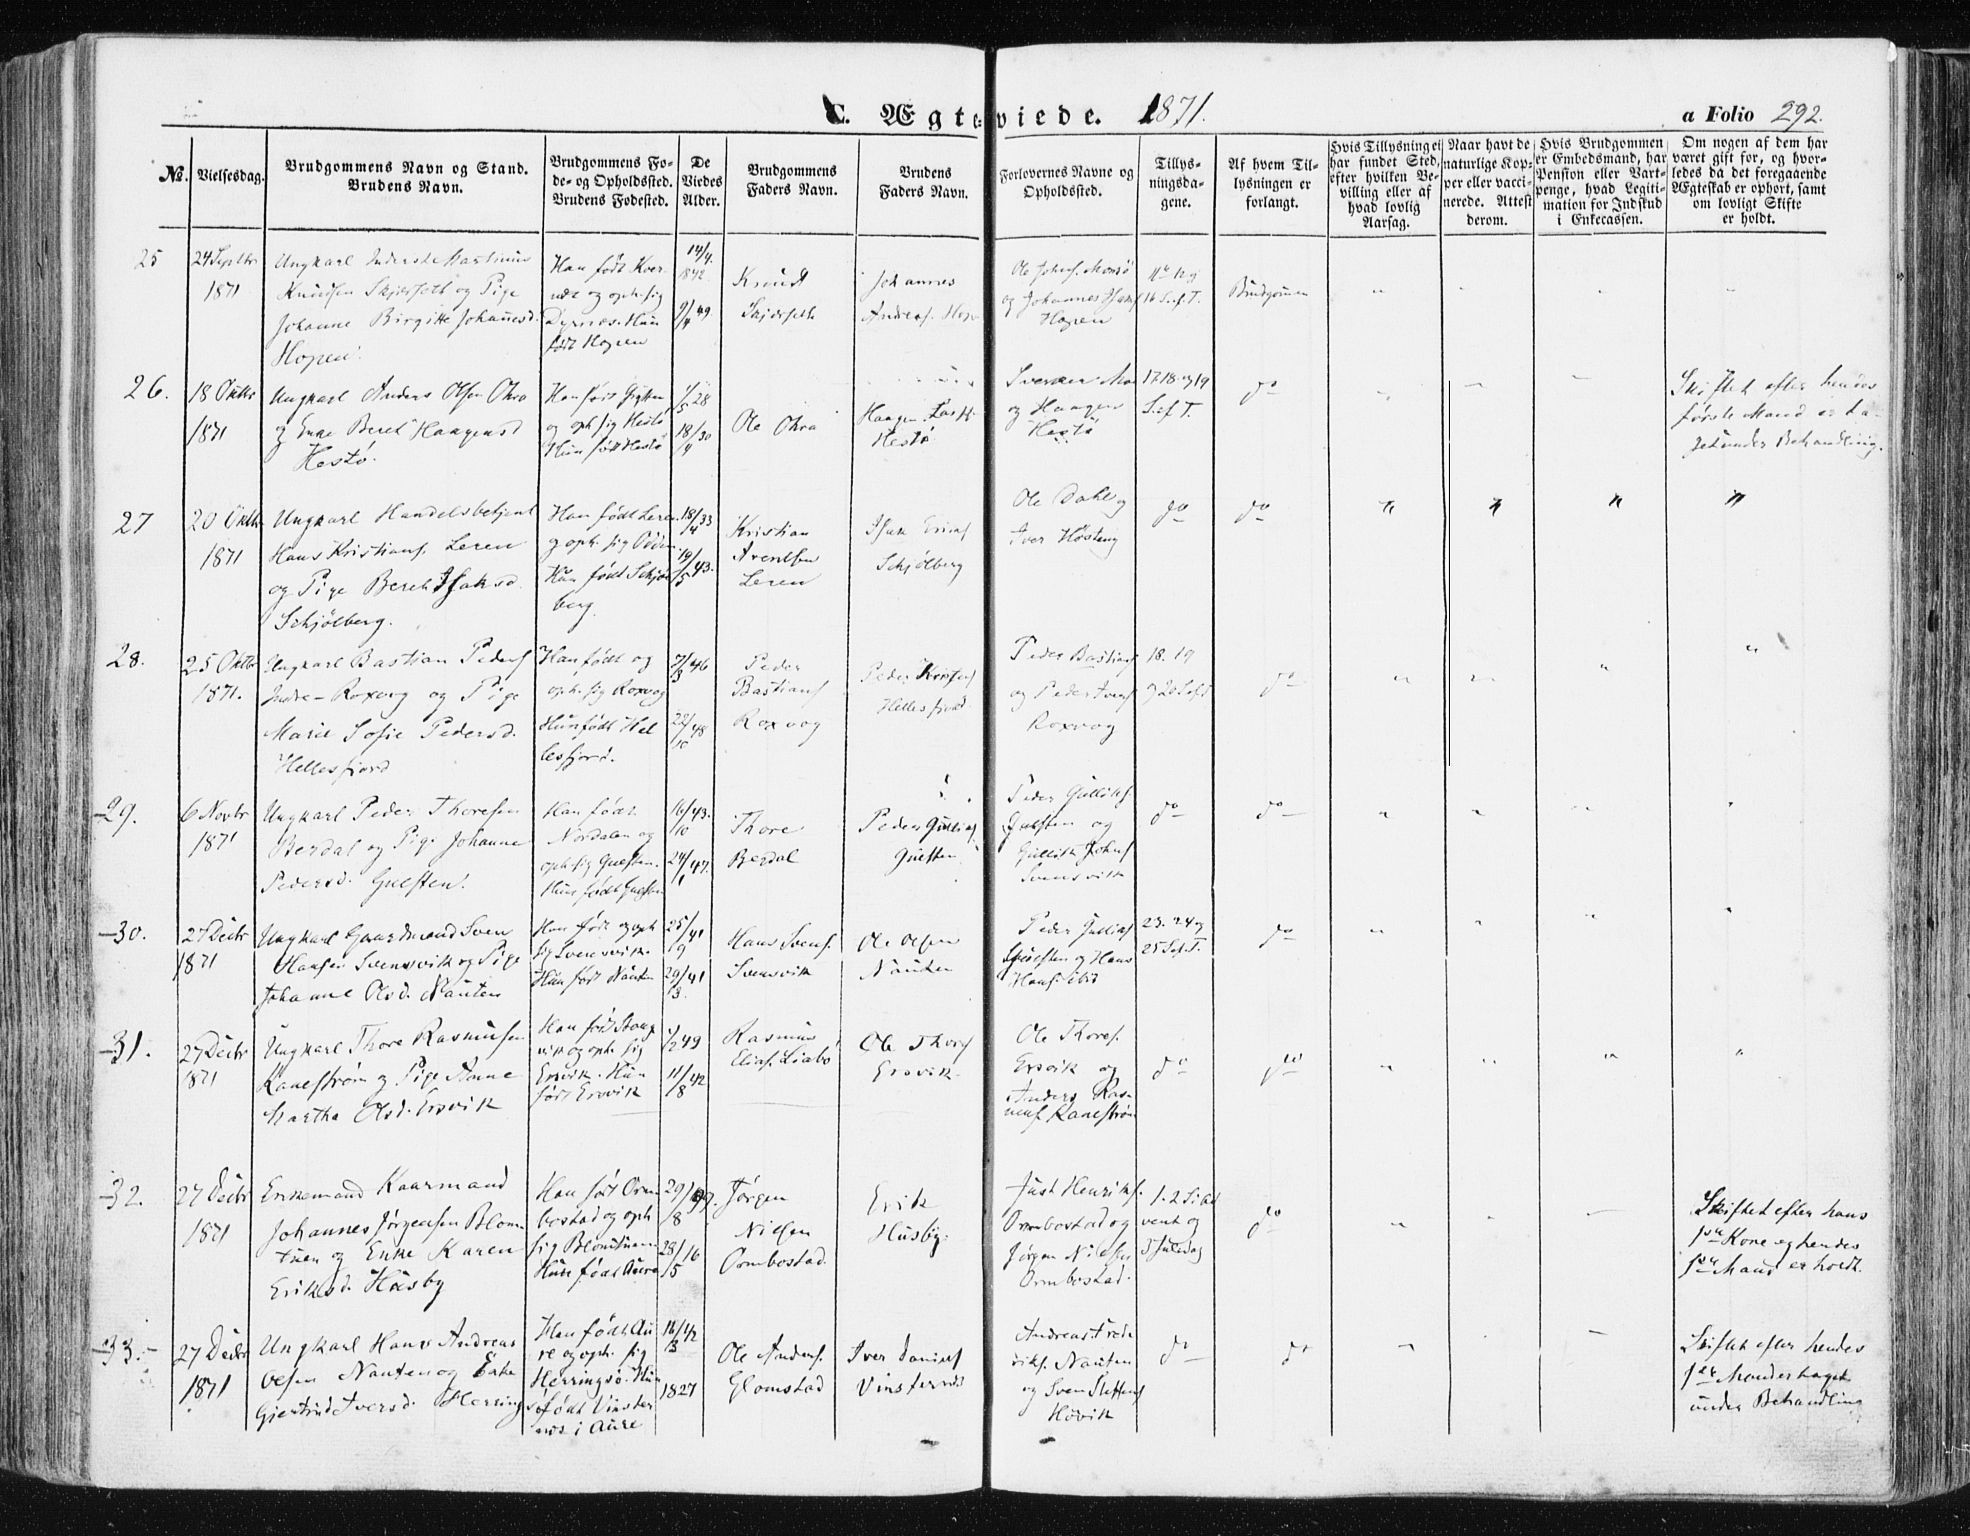 C. Ægteviede. 1871.
a Folio 292.
№.
Vielsesdag.
Brudgommens Navn og Stand.
Brudens Navn.
Brudgommens Fø-
de- og Opholdssted.
Brudens Fødested.
De
Viedes
Alder.
Brudgommens
Faders Navn.
Brudens
Faders Navn.
Forlovernes Navne og
Opholdssted.
Tillys-
ningsda-
gene.
Af hvem Til-
lysningen er
forlangt.
Hvis Tillysning ei
har fundet Sted,
efter hvilken Be-
villing eller af
hvad lovlig
Aarsag.
Naar havt de
naturlige Kop-
per eller vacci-
nerede. Attest
derom.
Hvis Brudgommen
er Embedsmand, har
Pension eller Vart-
penge, hvad Legiti-
mation for Indskud
i Enkecassen.
Om nogen af dem har
været gift før, og hvor-
ledes da det foregaaende
Ægteskab er ophørt, samt
om lovligt Skifte
er holdt.
25
24 Septbr
1871
Ungkarl Inderste Mastinus
Knudsen Skjerseth og Pige
Johanne Birgitte Johannesd.
Hopen.
Han født Kver-
næs og oph. sig
Dyrnæs. Hun
født Hopen
14/4.
1842.
9/4 49
Knudt
Skjerseth
Johannes
Anders. Hop
Ole Johns. Monsø
og Johannes
Hopen
16 S. e. f. T.
Brudgommen
26.
18 Oktbr
1871
Ungkarl Anders Olsen Okro
og Enke Beret Haagensd
Hestø.
Han født
og oph. sig Hestø
Hun født Hestø
1/5 28
18/4 30
Ole Okro
Haagen
Hestø
Sverker Moe
og Haagen
Hestø
17. 18. og 19
S. e. f. T.
do
Skiftet efter hendes
første Mand er ta-
get under Behandling.
27
20 Oktbr
1871
Ungkarl Handelsbetjent
Hans Kristians. Leren
og Pige Beret Isaksd.
Schjølberg.
Han født Leren
og oph. sig Odden.
Hun født Schjøl
berg.
18/4 33
19/5 43.
Kristian
Arentsen
Leren
Isak Erics
Schjølberg
Ole Dahl og
Iver Høsteng
do
do
28.
25 Oktbr
1871.
Ungkarl Bastian Peders
Indre-Roxvog og Pige
Marie Sofie Pedersd.
Hellesfjord
Han født og
oph. sig Roxvog
Hun født Hel
lesfjord.
7/3 46
22/10 48
Peder
Bastians
Roxvog
Peder Kristens
Hellesfjord.
Peder Bastians
og Peder Ivers
Roxvog
18. 19
og 20 S. e. f. T
do
29.
6 Novbr
1871
Ungkarl Peder Thoresen
Berdal og Pige Johanne
Pedersd. Gulsten.
Han født
Nordalen og
oph. sig Gulsten.
Hun født Gulsten
16/10 43.
24/1 47.
Thore
Berdal
Peder Gulliks.
Gulsten
Peder Gulliks.
Gulsten og
Gullik Johns
Svensvik
do
do
30.
27 Decbr
1871
Ungkarl Gaardmand Sven
Hansen Svensvik og Pige
Johanne Olsd. Nauten
Han født og oph
sig Svensvik.
Hun født Nauten
25/9 41
29/3 41
Hans Svens.
Svensvik
Ole Olsen
Nauten
Peder Gulliks
Gulsten og Hans
Hans.
23. 24 og
25 S. e. f. T.
do
31.
27 Decbr
1871
Ungkarl Thore Rasmusen
Kanestrøm og Pige Anne
Martha Olsd. Ersvik
Han født Stang
vik og oph. sig
Ersvik. Hun
født Ersvik
1/2 49
11/8 42
Rasmus
Elias. Liabø
Ole Thors
Ersvik
Ole Thores.
Ersvik og
Anders Ras-
mus. Kanestrøm
do
do
32.
27 Decbr
1871
Enkemand Kaarmand
Johannes Jørgensen Blom
tuen og Enke Karen
Eriksd. Husby
Han født Orm
bostad og oph
sig Blomtuen
Hun født Aure
29/8
28/5 16
Jørgen
Nielsen
Ormbostad.
Erik
Husby.
Just Henriks.
Ormbostad og
Jørgen Nilsen
Ormbostad.
1. 2 S. i Ad
vent og
3 Juledag
do
Skiftet efter hans
1ste Kone og hendes
1ste Mand er holdt.
33.
27 Decbr
1871
Ungkarl Hans Andreas
Olsen Nauten og Enke
Gjertrud Iversd. Herrings
Han født Au
re og oph. sig
Herringsø. Hun
født Vinster
næs i Aure
16/3 42
1827
Ole Anders.
Glomstad
Iver Daniels
Vinsternæs
Andreas Frede
riks. Nauten
og Sven Steffens
Høvik
do
do
Skiftet efter hendes
1ste Mand er taget
under Behandling